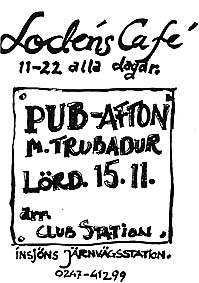 Lodéns Café
11-22 alla dagar.
PUB-AFTON
M. TRUBADUR
LÖRD. 15.11.
arr.
CLUB STATION.
INSJÖNS JÄRNVÄGSSTATION.
0247-41299